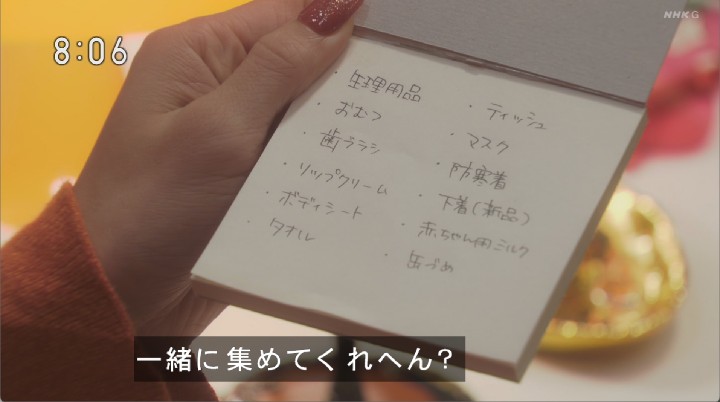 NHK G
8:06
・生理用品
・おむつ
・歯ブラシ
・リップクリーム
・ボディシート
・タオル
・ティッシュ
・マスク
・防寒着
・下着(新品)
・赤ちゃん用ミルク
・缶づめ
一緒に集めてくれへん?